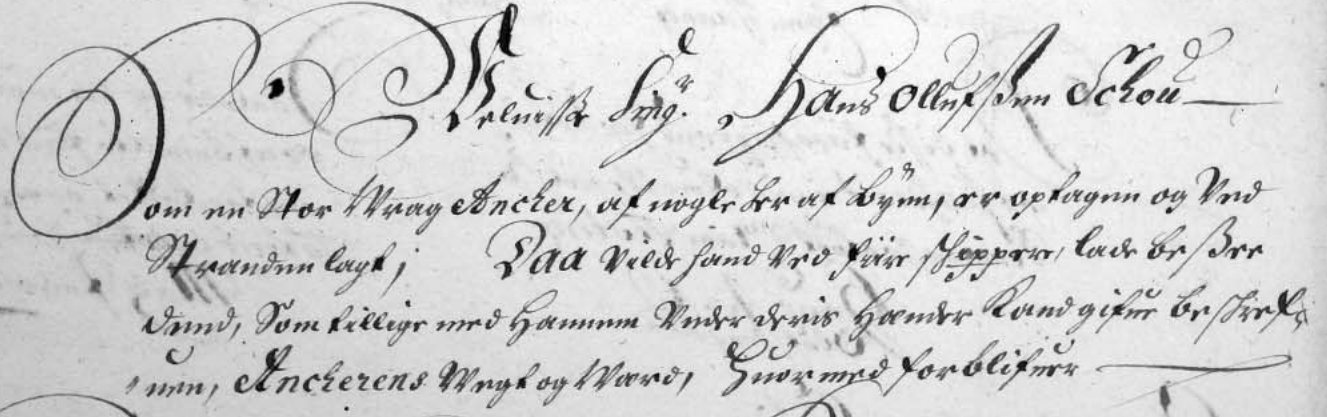 Veluiise Sigr. Hans Ollufsßen Schou
Som en Stor Wrag Ancher, af nogle her af byen, er optagen og Ved
Stranden lagt; Daa vilde hand Ved fiire schippere, lade beßee
dend, Som tillige med Hannem Under deris Hænder Kand gifue beschref-
uen, Ancherens Wegt og Ward, Huormed forblifuer